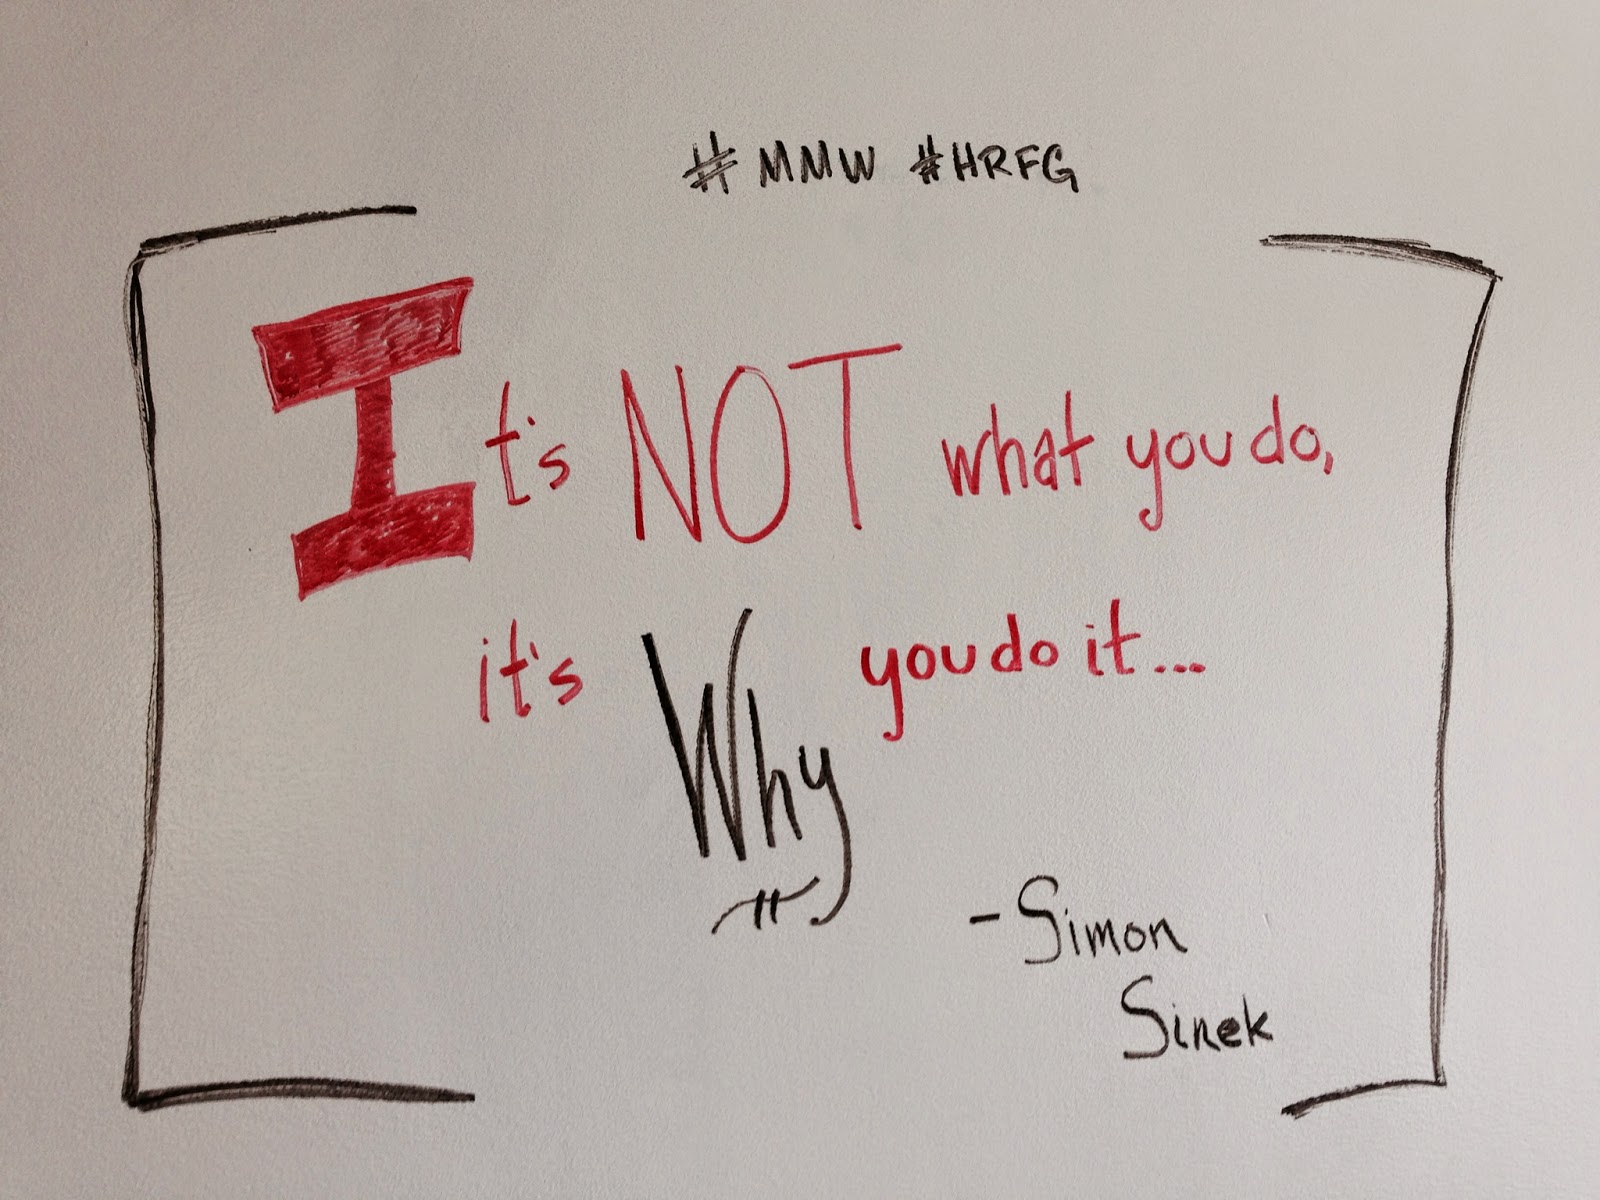 #MMW #HRFG
It's NOT what you do,
it's Why you do it...
- Simon
Sinek